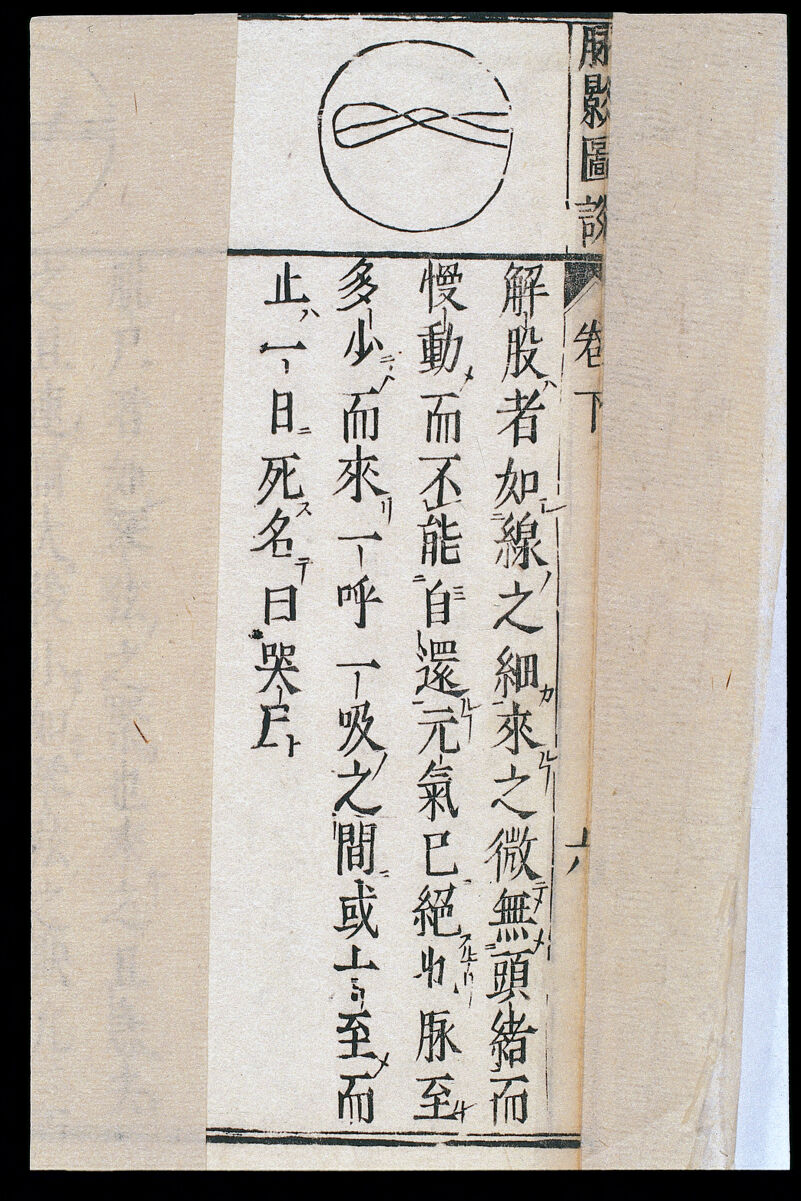 脉影圖説
卷下
解股者如線之細來之微無頭緒而
慢動而不能自還元氣已絕也脉至
多少而來一呼一吸之間或上至而
止一日死名曰哭尸